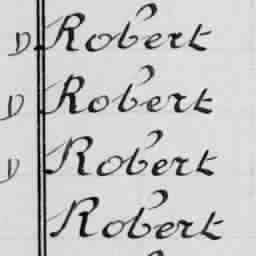 D Robert
D Robert
D Robert
Robert